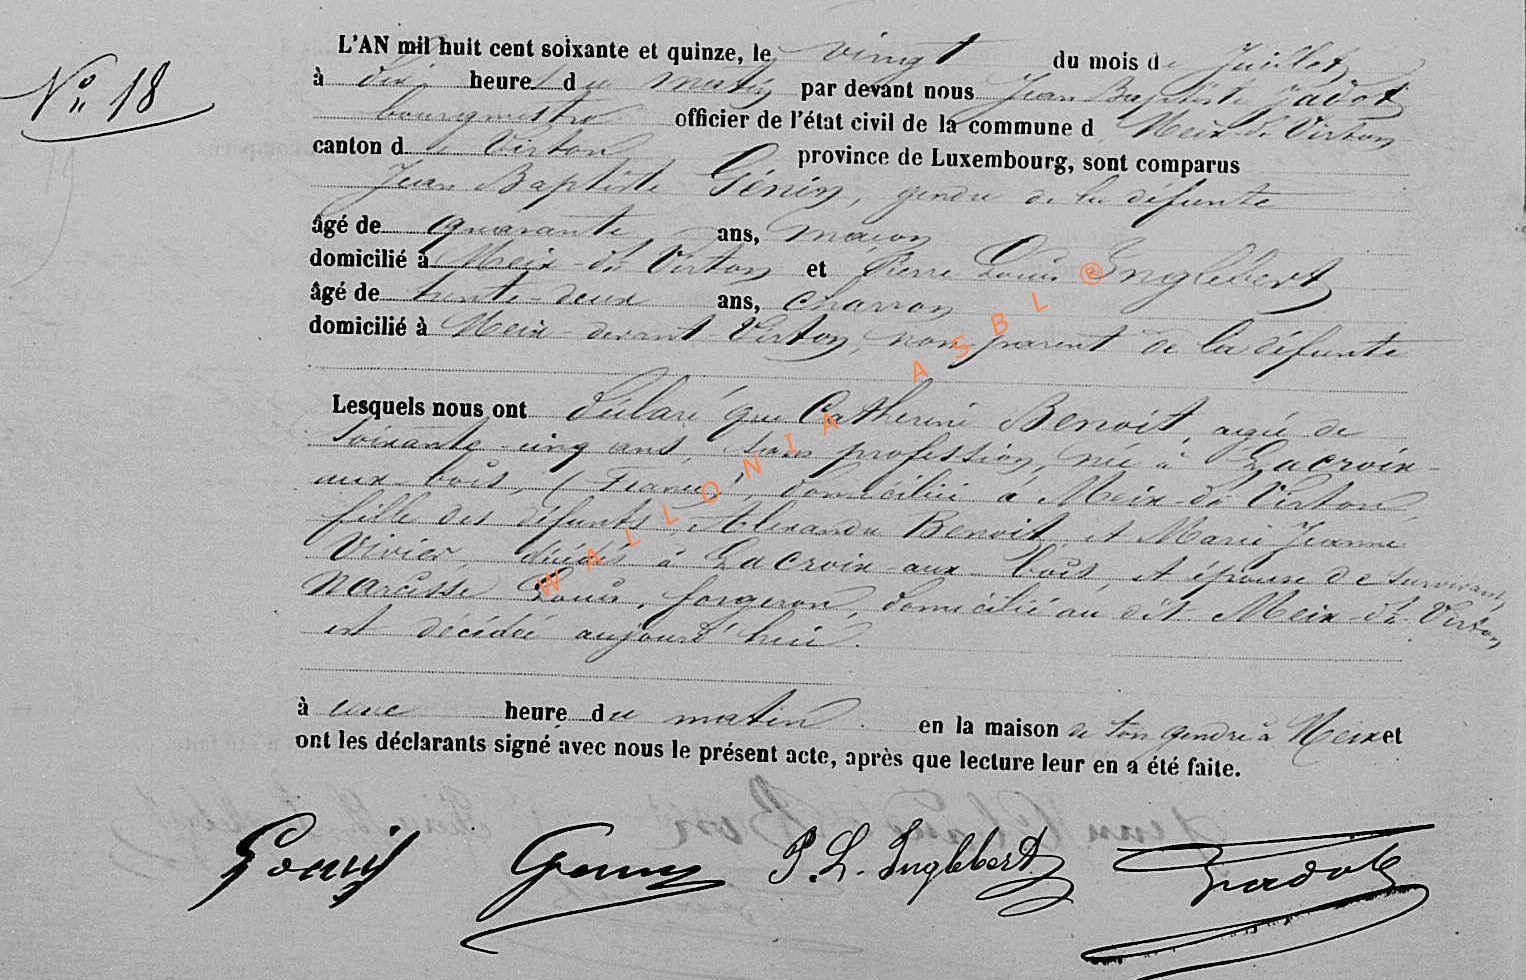 N° 18
L'AN mil huit cent soixante et quinze, le vingt du mois de Juillet
à dix heure du matin par devant nous Jean Baptiste Jadot
bourgmestre officier de l'état civil de la commune d Meix-dt Virton
canton de Virton province de Luxembourg, sont comparus
Jean Baptiste Génin, gendre de la défunte
âgé de quarante ans, maçon
domicilié à Meix-dt Virton et Pierre Louis Inglebert
âgé de trente-deux ans, charron
domicilié à Meix-devant Virton, non parent de la défunte
Lesquels nous ont déclaré que Catherine Benoit, agée de
soixante-cinq ans, sans profession, née à Lacroix-
aux-bois, (France), domiciliée à Meix-dt Virton
fille des défunts Alexandre Benoit et Marie Jeanne
Vivier, décédés à Lacroix-aux-bois, et épouse de survivant,
Narcisse Louis, forgeron, domicilié au dit Meix-dt-Virton,
est décédée aujourd'hui.
à une heure du matin. en la maison de son gendre à Meix et
ont les déclarants signé avec nous le présent acte, après que lecture leur en a été faite.
Louis Genin P. L. Inglebert Jadot
WALLONIA ASBL ®